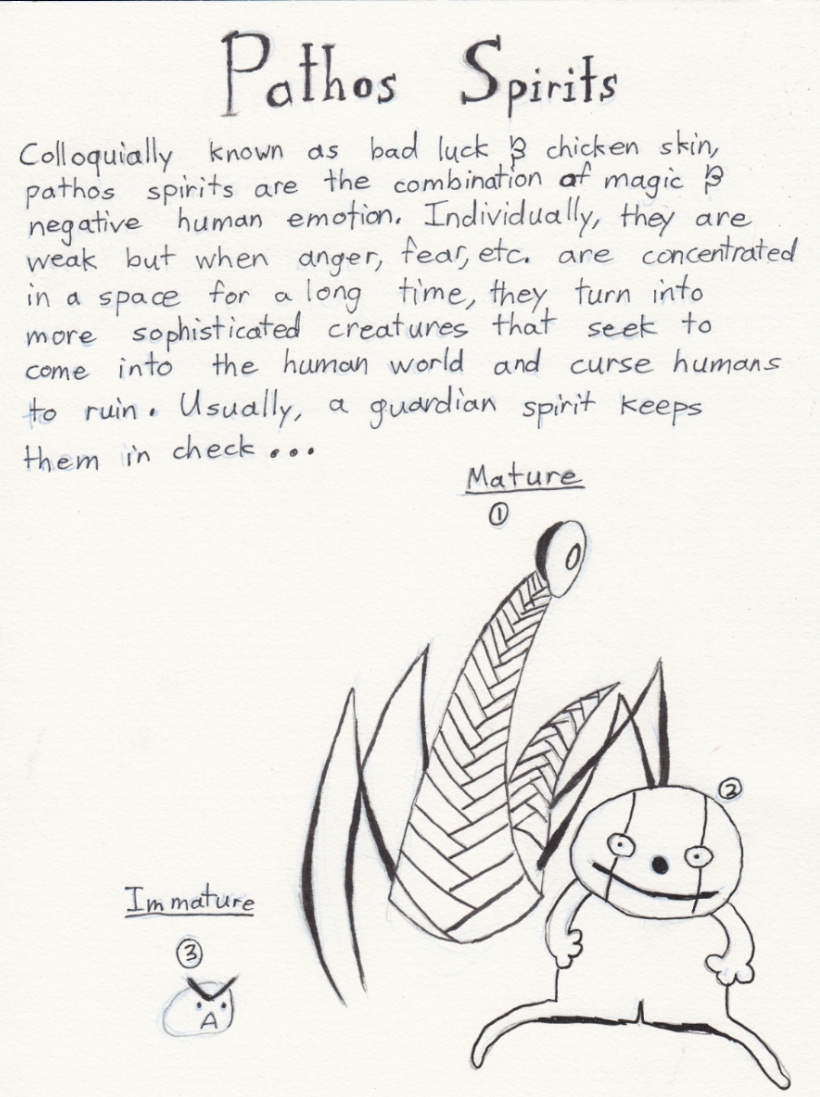 Pathos Spirits
Colloquially known as bad luck & chicken skin,
pathos spirits are the combination of magic &
negative human emotion. Individually, they are
weak but when anger, fear, etc. are concentrated
in a space for a long time, they turn into
more sophisticated creatures that seek to
come into the human world and curse humans
to ruin. Usually, a guardian spirit keeps
them in check...
Mature
①
②
Immature
③